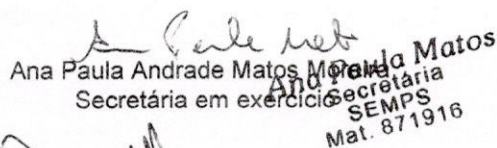 Ana Paula Andrade Matos Moreira
Secretária em exercício
Ana Paula Matos
Secretária
SEMPS
Mat. 871916